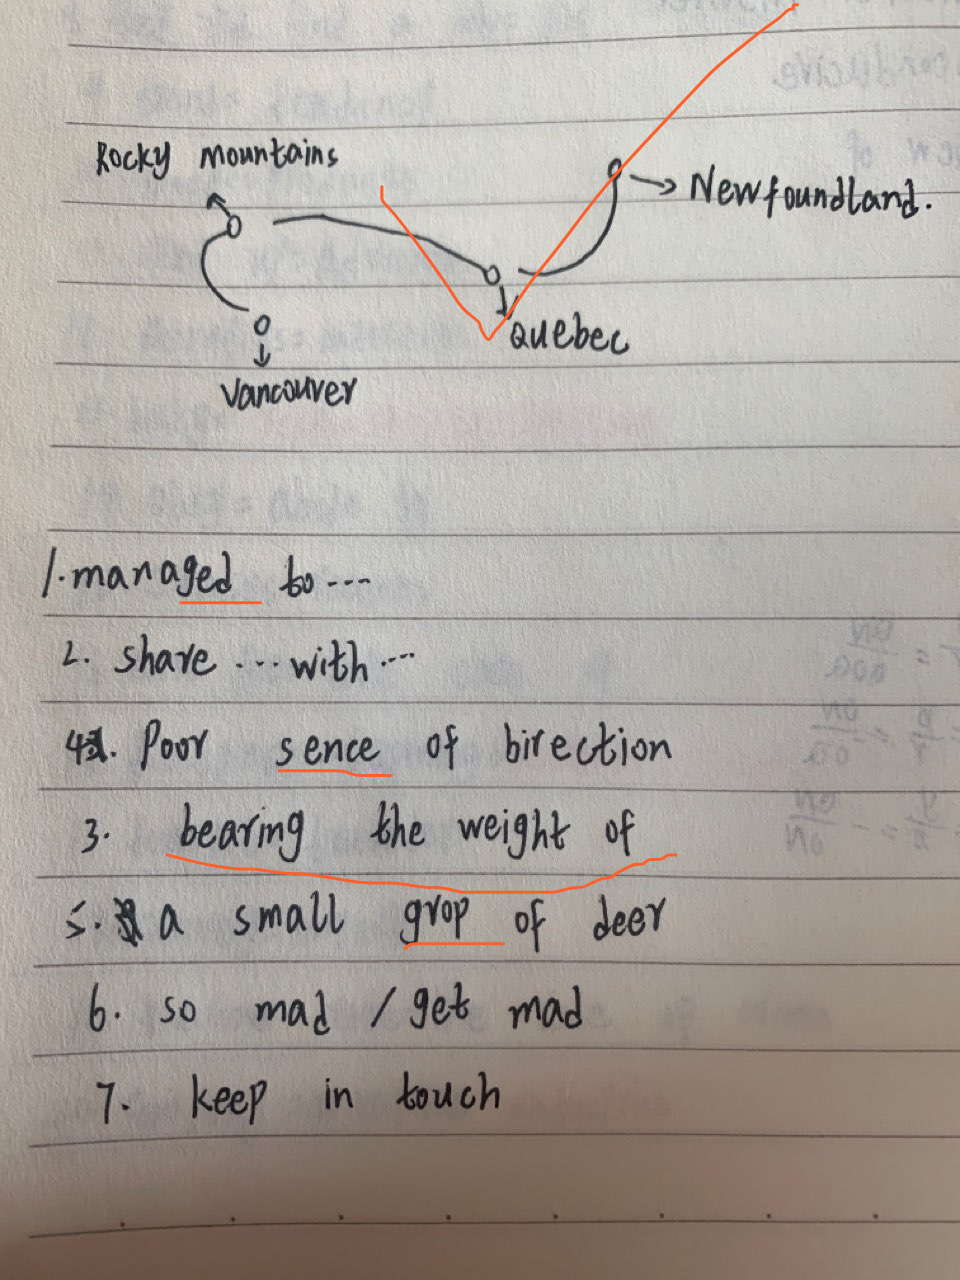 Rocky mountains
Newfoundland.
Quebec
Vancouver
1. managed to ---
2. share ... with ...
4. Poor sence of birection
3. bearing the weight of
5. a small grop of deer
6. so mad / get mad
7. keep in touch